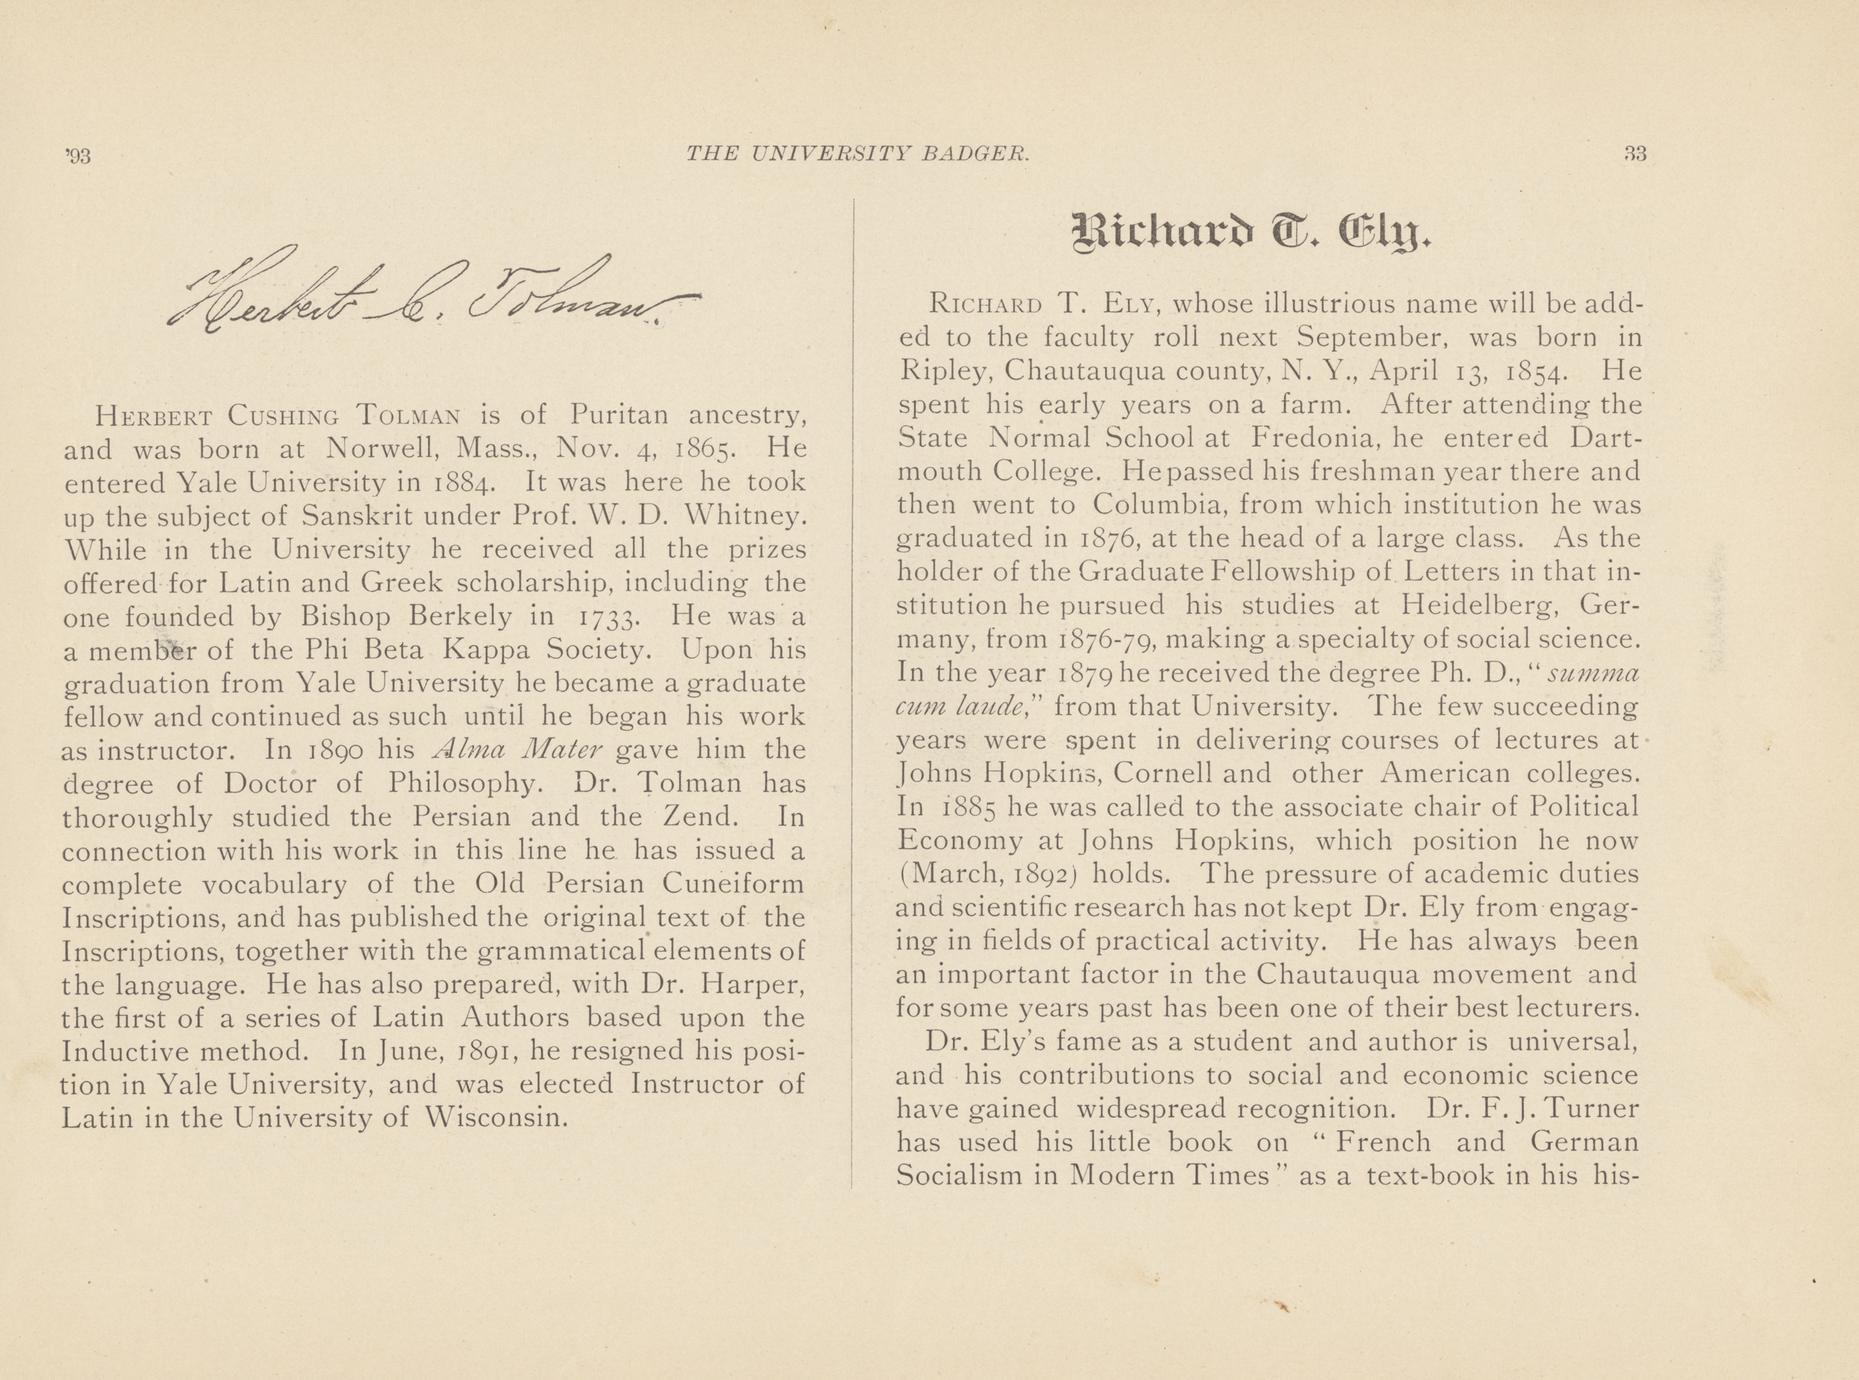 '93
THE UNIVERSITY BADGER.
33
Herbert C. Tolman.
HERBERT CUSHING TOLMAN is of Puritan ancestry,
and was born at Norwell, Mass., Nov. 4, 1865. He
entered Yale University in 1884. It was here he took
up the subject of Sanskrit under Prof. W. D. Whitney.
While in the University he received all the prizes
offered for Latin and Greek scholarship, including the
one founded by Bishop Berkely in 1733. He was a
a member of the Phi Beta Kappa Society. Upon his
graduation from Yale University he became a graduate
fellow and continued as such until he began his work
as instructor. In 1890 his Alma Mater gave him the
degree of Doctor of Philosophy. Dr. Tolman has
thoroughly studied the Persian and the Zend. In
connection with his work in this line he has issued a
complete vocabulary of the Old Persian Cuneiform
Inscriptions, and has published the original text of the
Inscriptions, together with the grammatical elements of
the language. He has also prepared, with Dr. Harper,
the first of a series of Latin Authors based upon the
Inductive method. In June, 1891, he resigned his posi-
tion in Yale University, and was elected Instructor of
Latin in the University of Wisconsin.
Richard T. Ely.
RICHARD T. ELY, whose illustrious name will be add-
ed to the faculty roll next September, was born in
Ripley, Chautauqua county, N. Y., April 13, 1854. He
spent his early years on a farm. After attending the
State Normal School at Fredonia, he entered Dart-
mouth College. He passed his freshman year there and
then went to Columbia, from which institution he was
graduated in 1876, at the head of a large class. As the
holder of the Graduate Fellowship of Letters in that in-
stitution he pursued his studies at Heidelberg, Ger-
many, from 1876-79, making a specialty of social science.
In the year 1879 he received the degree Ph. D., "summa
cum laude," from that University. The few succeeding
years were spent in delivering courses of lectures at
Johns Hopkins, Cornell and other American colleges.
In 1885 he was called to the associate chair of Political
Economy at Johns Hopkins, which position he now
(March, 1892) holds. The pressure of academic duties
and scientific research has not kept Dr. Ely from engag-
ing in fields of practical activity. He has always been
an important factor in the Chautauqua movement and
for some years past has been one of their best lecturers.
Dr. Ely's fame as a student and author is universal,
and his contributions to social and economic science
have gained widespread recognition. Dr. F. J. Turner
has used his little book on "French and German
Socialism in Modern Times" as a text-book in his his-